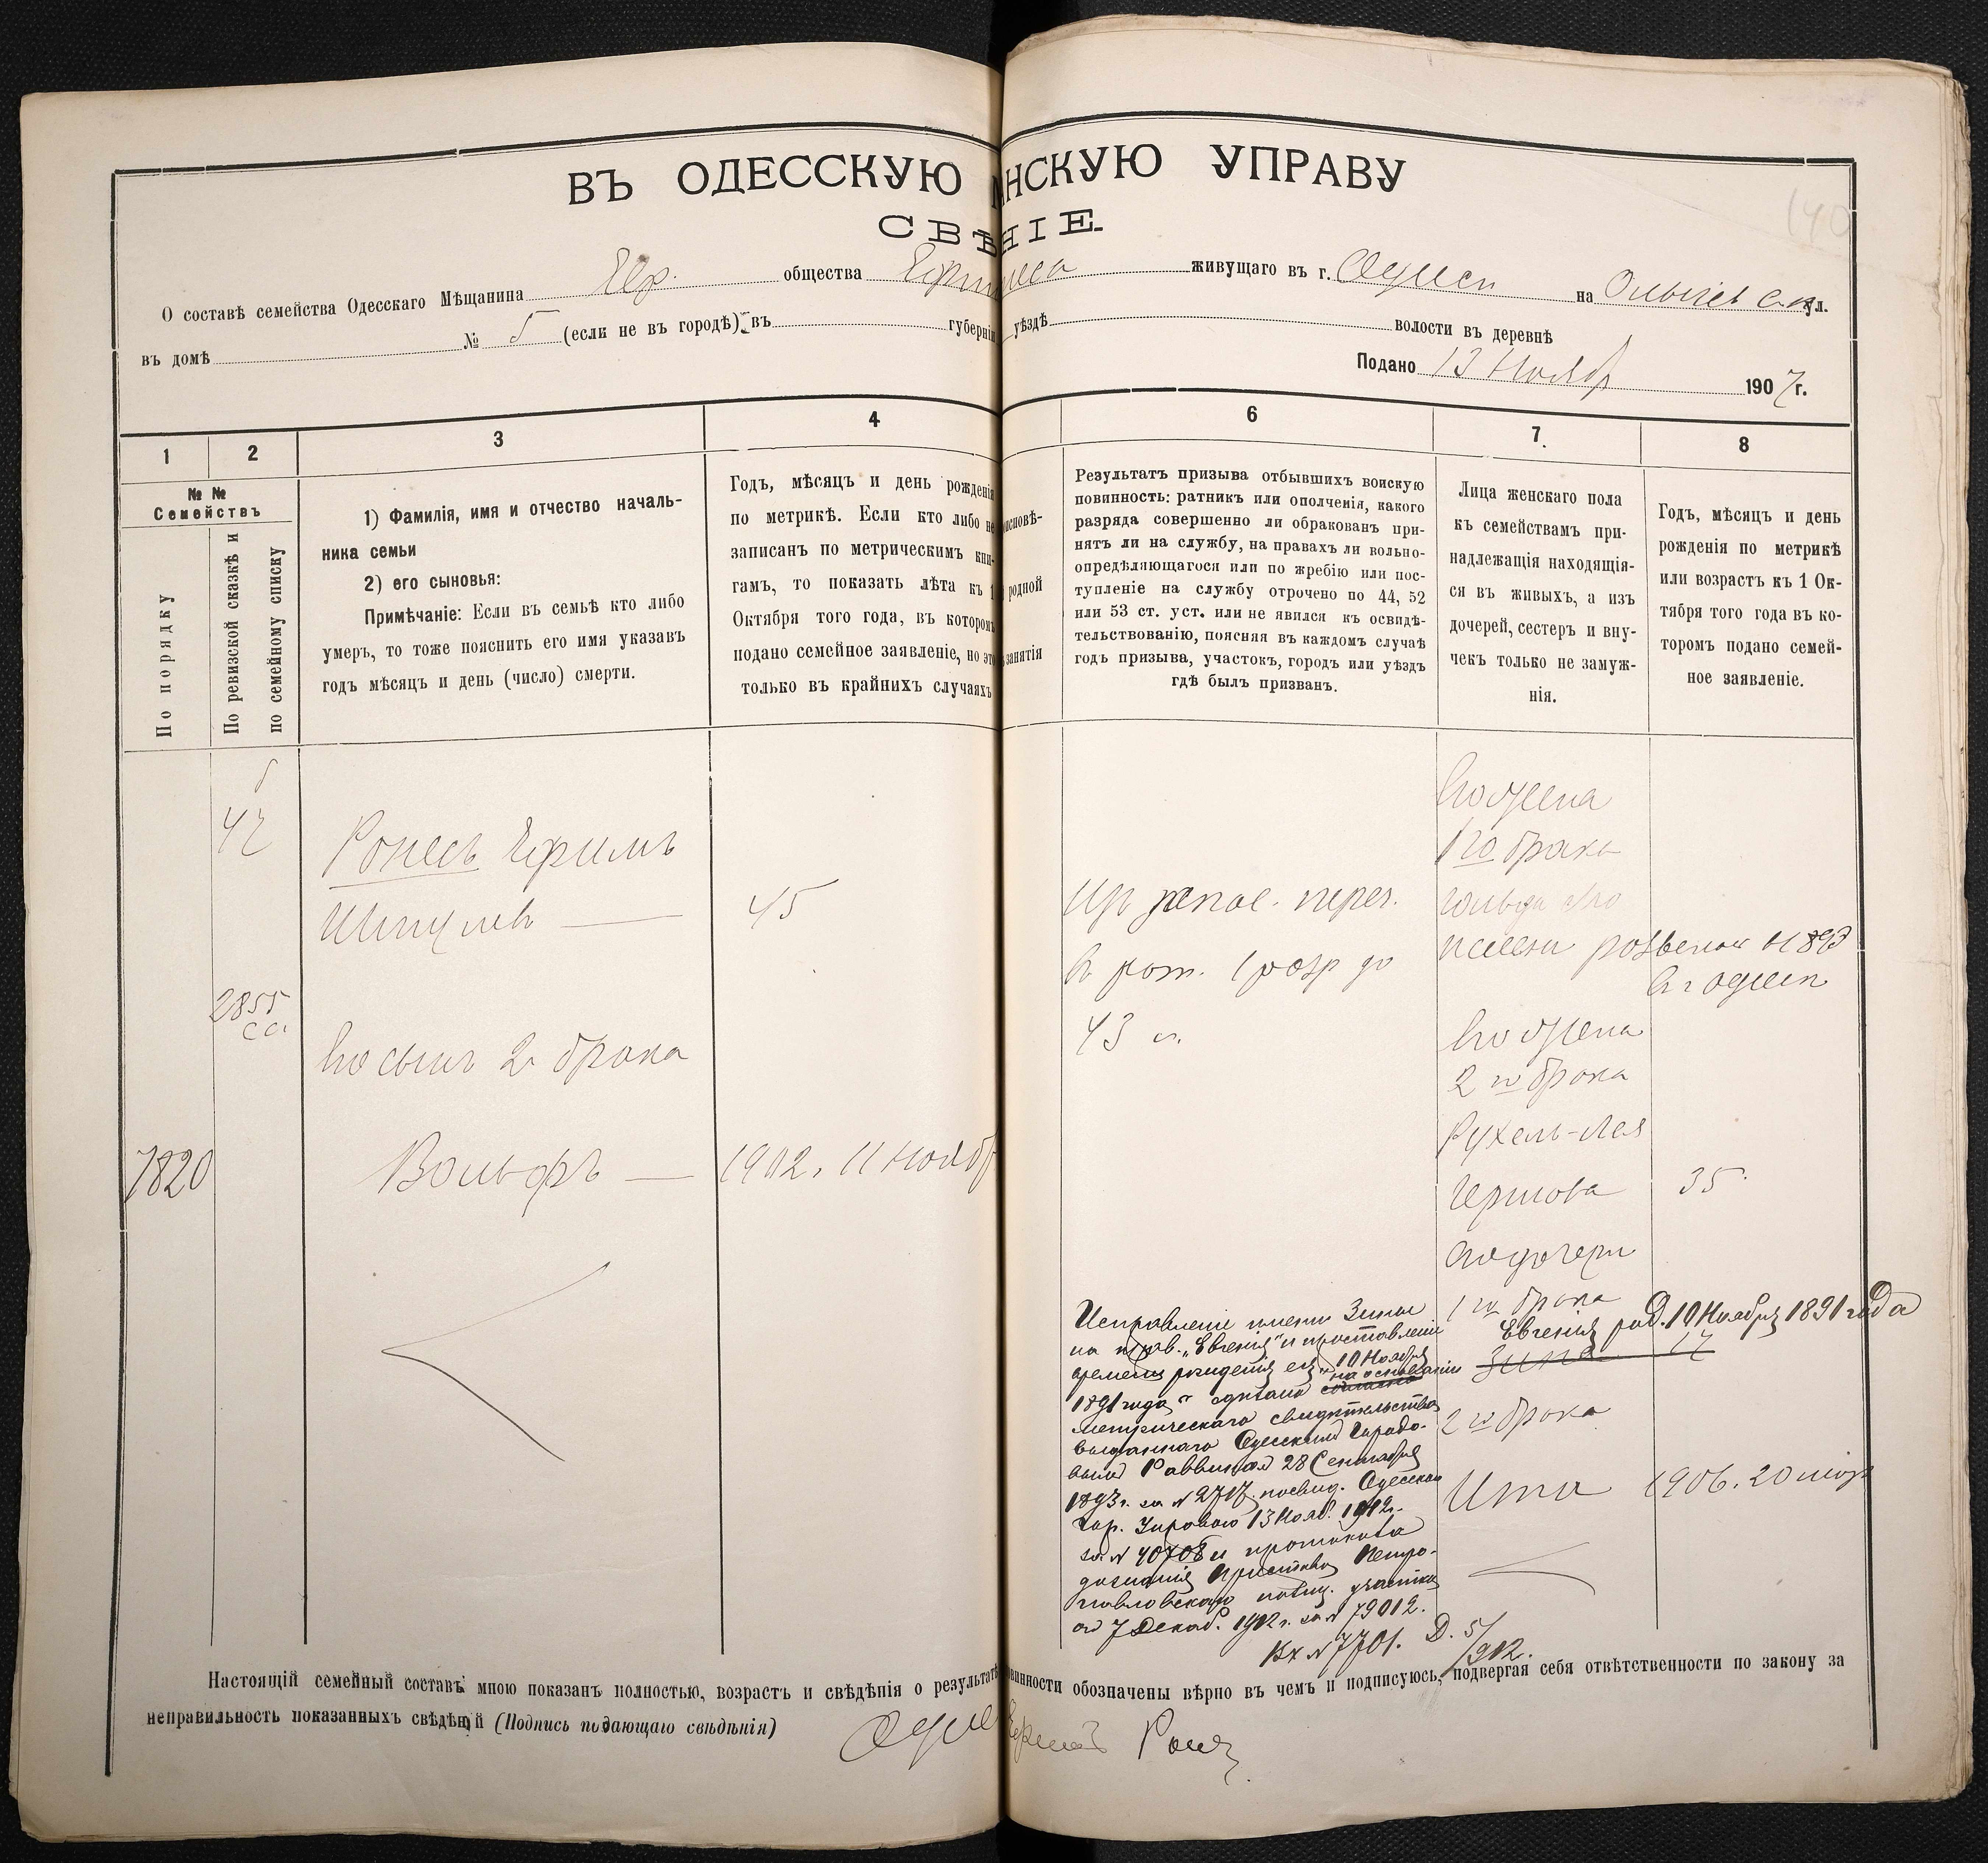 ВЪ ОДЕССКУЮ НСКУЮ УПРАВУ
СВѢ НІЕ.
О составѣ семейства Одесскаго Мѣщанина Евр. общества живущаго въ г. Одессѣ на ул.
въ домѣ № 5 (если не въ городѣ) въ губерніи уѣздѣ волости въ деревнѣ
Подано 13 Ноября 1907 г.
1 2 3 4 6 7. 8
№ №
Семействъ
По порядку
По ревизской сказкѣ и
по семейному списку
1) Фамилія, имя и отчество началь-
ника семьи
2) его сыновья:
Примѣчаніе: Если въ семьѣ кто либо
умеръ, то тоже пояснить его имя указавъ
годъ мѣсяцъ и день (число) смерти.
Годъ, мѣсяцъ и день рожденія
по метрикѣ. Если кто либо не
записанъ по метрическимъ кни-
гамъ, то показать лѣта къ 1
Октября того года, въ которомъ
подано семейное заявленіе, но это
только въ крайнихъ случаяхъ
родной
занятія
Результатъ призыва отбывшихъ воискую
повинность: ратникъ или ополченія, какого
разряда совершенно ли обракованъ при-
нятъ ли на службу, на правахъ ли вольно-
опредѣляющагося или по жребію или пос-
тупленіе на службу отрочено по 44, 52
или 53 ст. уст. или не явился къ освидѣ-
тельствованію, поясняя въ каждомъ случаѣ
годъ призыва, участокъ, городъ или уѣздъ
гдѣ былъ призванъ.
Лица женскаго пола
къ семействамъ при-
надлежащія находящія-
ся въ живыхъ, а изъ
дочерей, сестеръ и вну-
чекъ только не замуж-
нія.
Годъ, мѣсяцъ и день
рожденія по метрикѣ
или возрастъ къ 1 Ок-
тября того года въ ко-
торомъ подано семей-
ное заявленіе.
42
Ронесъ Ефимъ
45
2855
его сынъ 2 брака
7820
Вольфъ — 1902. 11 нояб
Изъ запас. переч.
в рат. 1 разр до
43 л.
его жена
1го брака
Гольда
розведен в 1893
в г Одессѣ
его жена
2го брака
Рухель-Лея
Гершова 35
его дочери
1го брака
Евгенія род. 10 Ноября 1891 года
Зина 17
2го брака
Ита 1906. 20
Исправленіе имени Зины
на „Евгенія" и проставленіе
времени рожденія ея „10 Ноября
1891 года" сдѣлано на основаніи
метрическаго свидѣтельства
выданнаго Одесскимъ Городо-
вымъ Раввиномъ 28 Сентября
1893 г. за № 2717, Одесской
Гор. Управою 13 Нояб. 1912 г.
за № 40708 и протокола
дознанія Пристава Петро-
павловскаго полиц. участка
от 7 Декаб. 1912 г. за № 79012.
Вх № 7701. Д. 5/912.
Настоящій семейный составъ мною показанъ полностью, возрастъ и свѣдѣнія о результатѣ винности обозначены вѣрно въ чемъ и подписуюсь, подвергая себя отвѣтственности по закону за
неправильность показанныхъ свѣдѣній (Подпись подающаго свѣдѣнія)